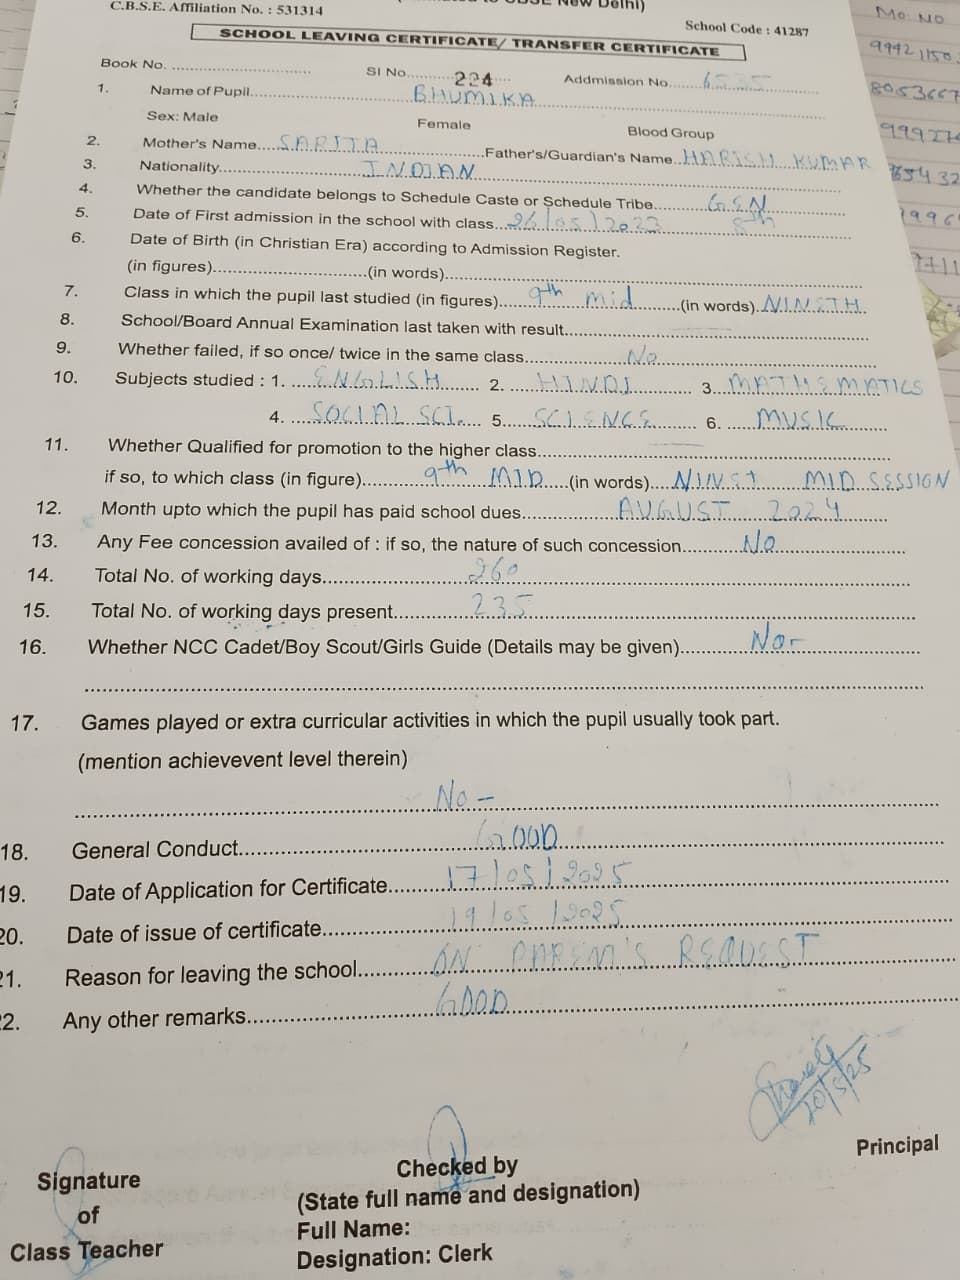 C.B.S.E. Affiliation No. : 531314
New Delhi)
School Code : 41287
SCHOOL LEAVING CERTIFICATE/ TRANSFER CERTIFICATE
Book No. Sl No. 224 Addmission No.
1. Name of Pupil BHUMIKA
Sex: Male Female Blood Group
2. Mother's Name SARITA Father's/Guardian's Name HARISH KUMAR
3. Nationality INDIAN
4. Whether the candidate belongs to Schedule Caste or Schedule Tribe GEN
5. Date of First admission in the school with class 26/05/2023 8th
6. Date of Birth (in Christian Era) according to Admission Register.
(in figures) (in words)
7. Class in which the pupil last studied (in figures) 9th mid (in words) NINETH
8. School/Board Annual Examination last taken with result
9. Whether failed, if so once/ twice in the same class No
10. Subjects studied : 1. ENGLISH 2. HINDI 3. MATHEMATICS
4. SOCIAL SCI. 5. SCIENCE 6. MUSIC
11. Whether Qualified for promotion to the higher class
if so, to which class (in figure) 9th MID (in words) MID SESSION
12. Month upto which the pupil has paid school dues AUGUST 2024
13. Any Fee concession availed of : if so, the nature of such concession No
14. Total No. of working days 260
15. Total No. of working days present 235
16. Whether NCC Cadet/Boy Scout/Girls Guide (Details may be given)
17. Games played or extra curricular activities in which the pupil usually took part.
(mention achievevent level therein)
No -
18. General Conduct GOOD
19. Date of Application for Certificate 17/05/2025
20. Date of issue of certificate 19/05/2025
21. Reason for leaving the school ON PAREM'S REQUEST
22. Any other remarks GOOD
20/5/25
Principal
Signature
of
Class Teacher
Checked by
(State full name and designation)
Full Name:
Designation: Clerk
Mo NO